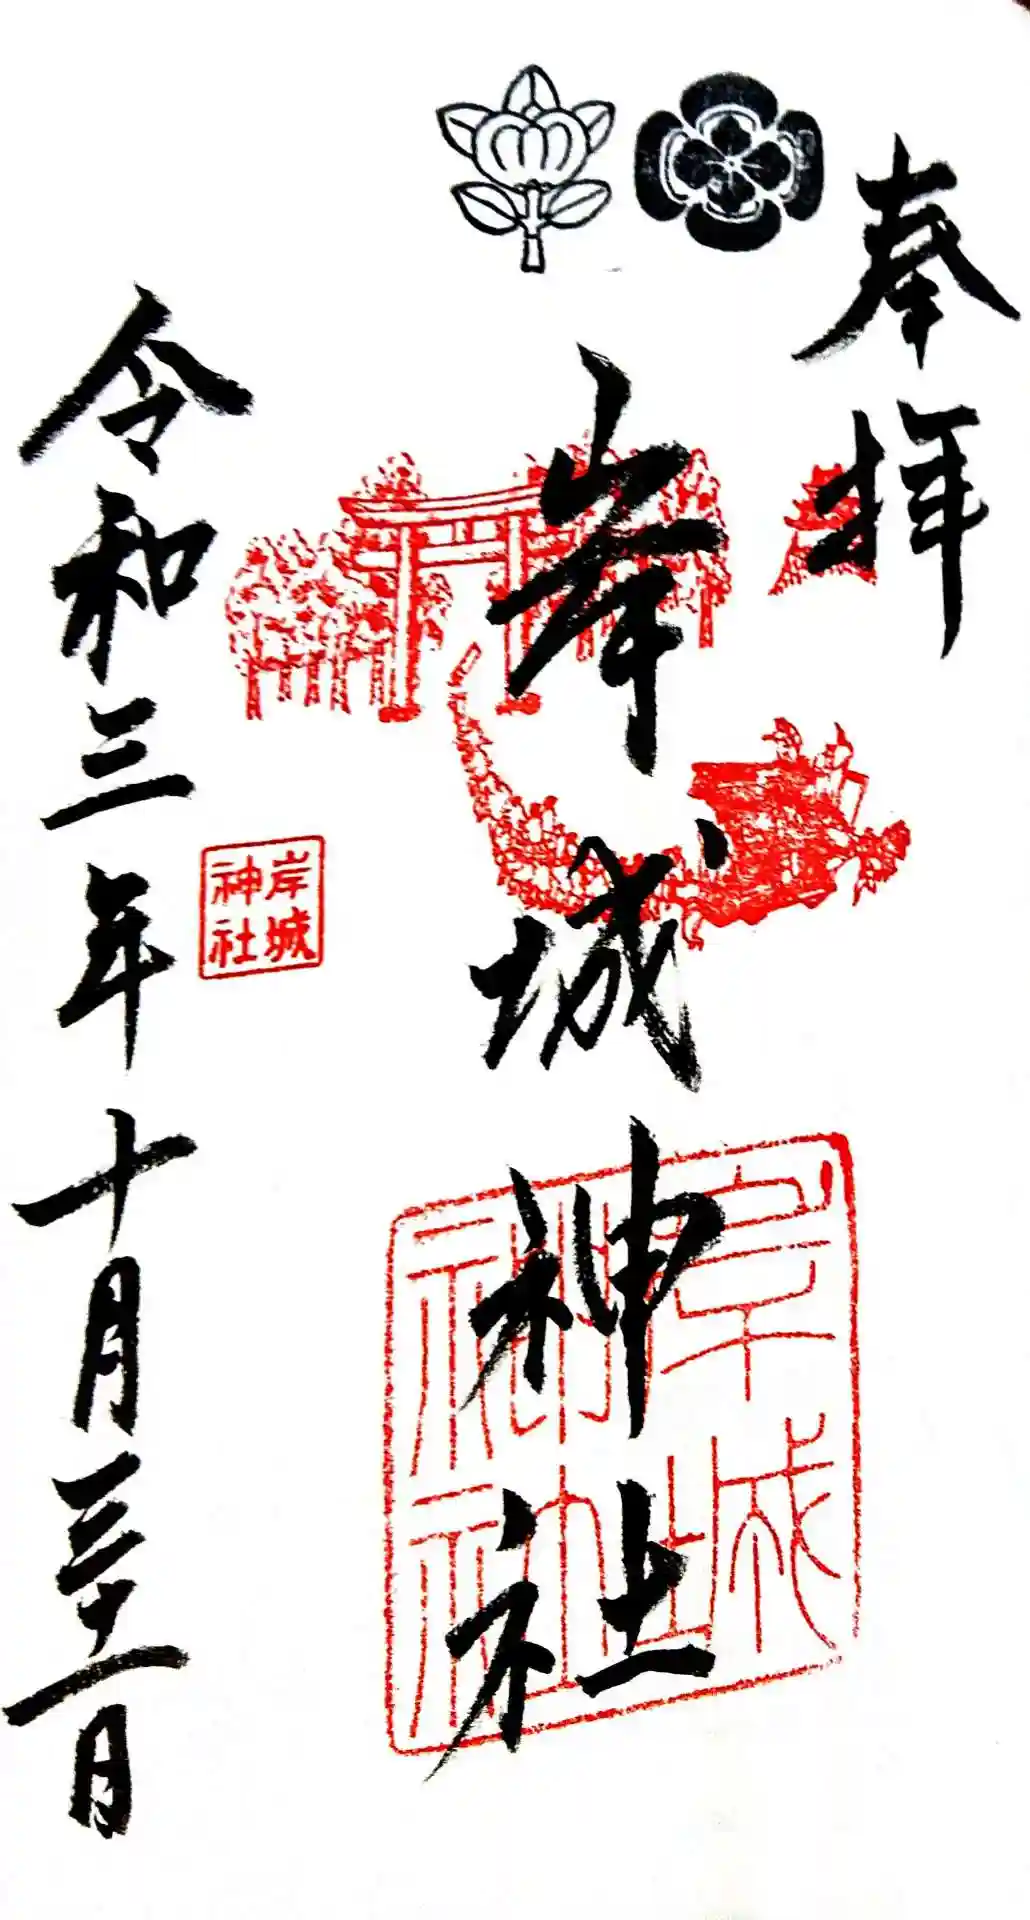 奉拝
岸城神社
岸城神社
岸城
神社
令和三年十月三十一日